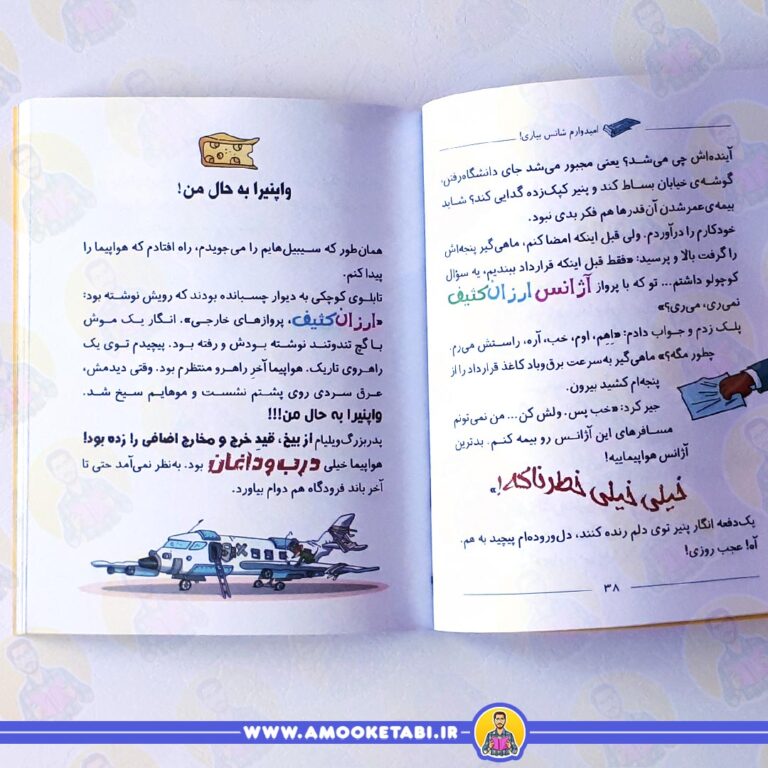 امیدوارم شانس بیاری!
آینده‌اش چی می‌شد؟ یعنی مجبور می‌شد جای دانشگاه‌رفتن،
گوشه‌ی خیابان بساط کند و پنیر کپک‌زده گدایی کند؟ شاید
بیمه‌ی عمرشدن آن‌قدرها هم فکر بدی نبود.
خودکارم را درآوردم. ولی قبل اینکه امضا کنم، ماهی‌گیر پنجه‌اش
را گرفت بالا و پرسید: «فقط قبل اینکه قرارداد ببندیم، یه سؤال
کوچولو داشتم... تو که با پرواز آژانس ارزان کثیف
نمی‌ری، می‌ری؟»
پلک زدم و جواب دادم: «اِهِم، اوم، خب، آره، راستش می‌رم.
چطور مگه؟» ماهی‌گیر به‌سرعت برق‌وباد کاغذ قرارداد را از
پنجه‌ام کشید بیرون.
جیر کرد: «خب پس. ولش کن... من نمی‌تونم
مسافرهای این آژانس رو بیمه کنم. بدترین
آژانس هواپیماییه!
خیلی خیلی خطرناکه!»
یک‌دفعه انگار پنیر توی دلم رنده کنند، دل‌وروده‌ام پیچید به هم.
آه! عجب روزی!
۳۸
واپنیرا به حال من!
همان‌طور که سبیل‌هایم را می‌جویدم، راه افتادم که هواپیما را
پیدا کنم.
تابلوی کوچکی به دیوار چسبانده بودند که رویش نوشته بود:
«ارزان کثیف، پروازهای خارجی». انگار یک موش
با گچ تندوتند نوشته بودش و رفته بود. پیچیدم توی یک
راهروی تاریک. هواپیما آخرِ راهرو منتظرم بود. وقتی دیدمش،
عرق سردی روی پشتم نشست و موهایم سیخ شد.
واپنیرا به حال من!!!
پدربزرگ ویلیام از بیخ، قیدِ خرج و مخارج اضافی را زده بود!
هواپیما خیلی درب‌وداغان بود. به‌نظر نمی‌آمد حتی تا
آخر باند فرودگاه هم دوام بیاورد.
WWW.AMOOKETABI.IR